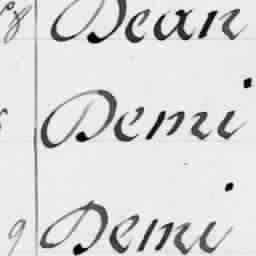 Dean
Demi
9 Demi